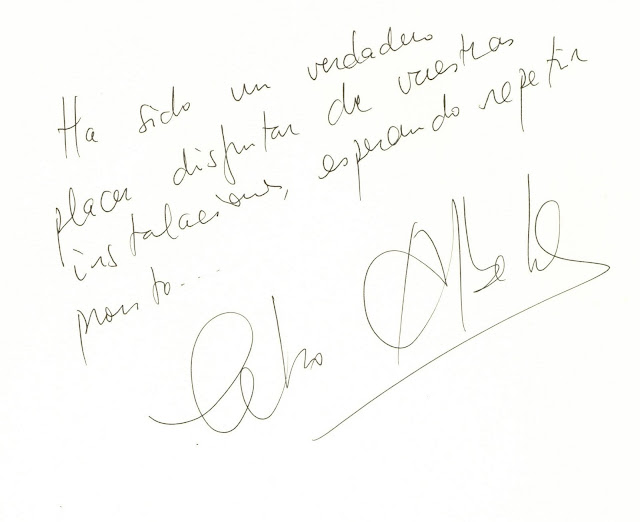 Ha sido un verdadero
placer disfrutar de vuestras
instalaciones, esperando repetir
pronto....
Celso Albelo